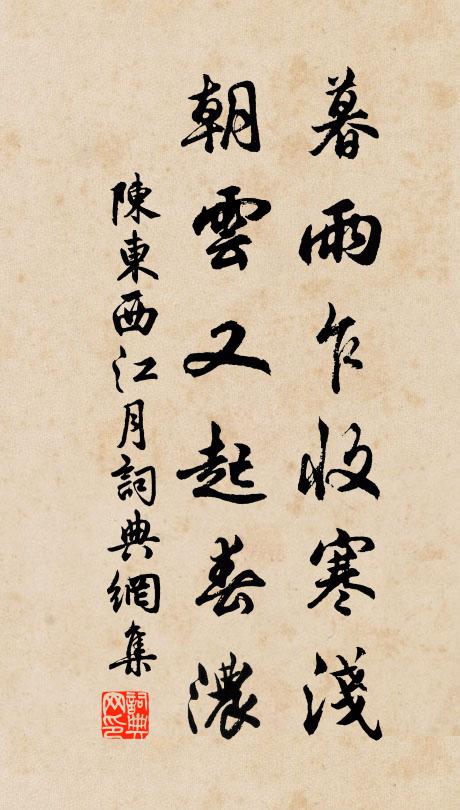 暮雨乍收寒淺
朝雲又起春濃
陳東西江月詞典網集
詞典网印